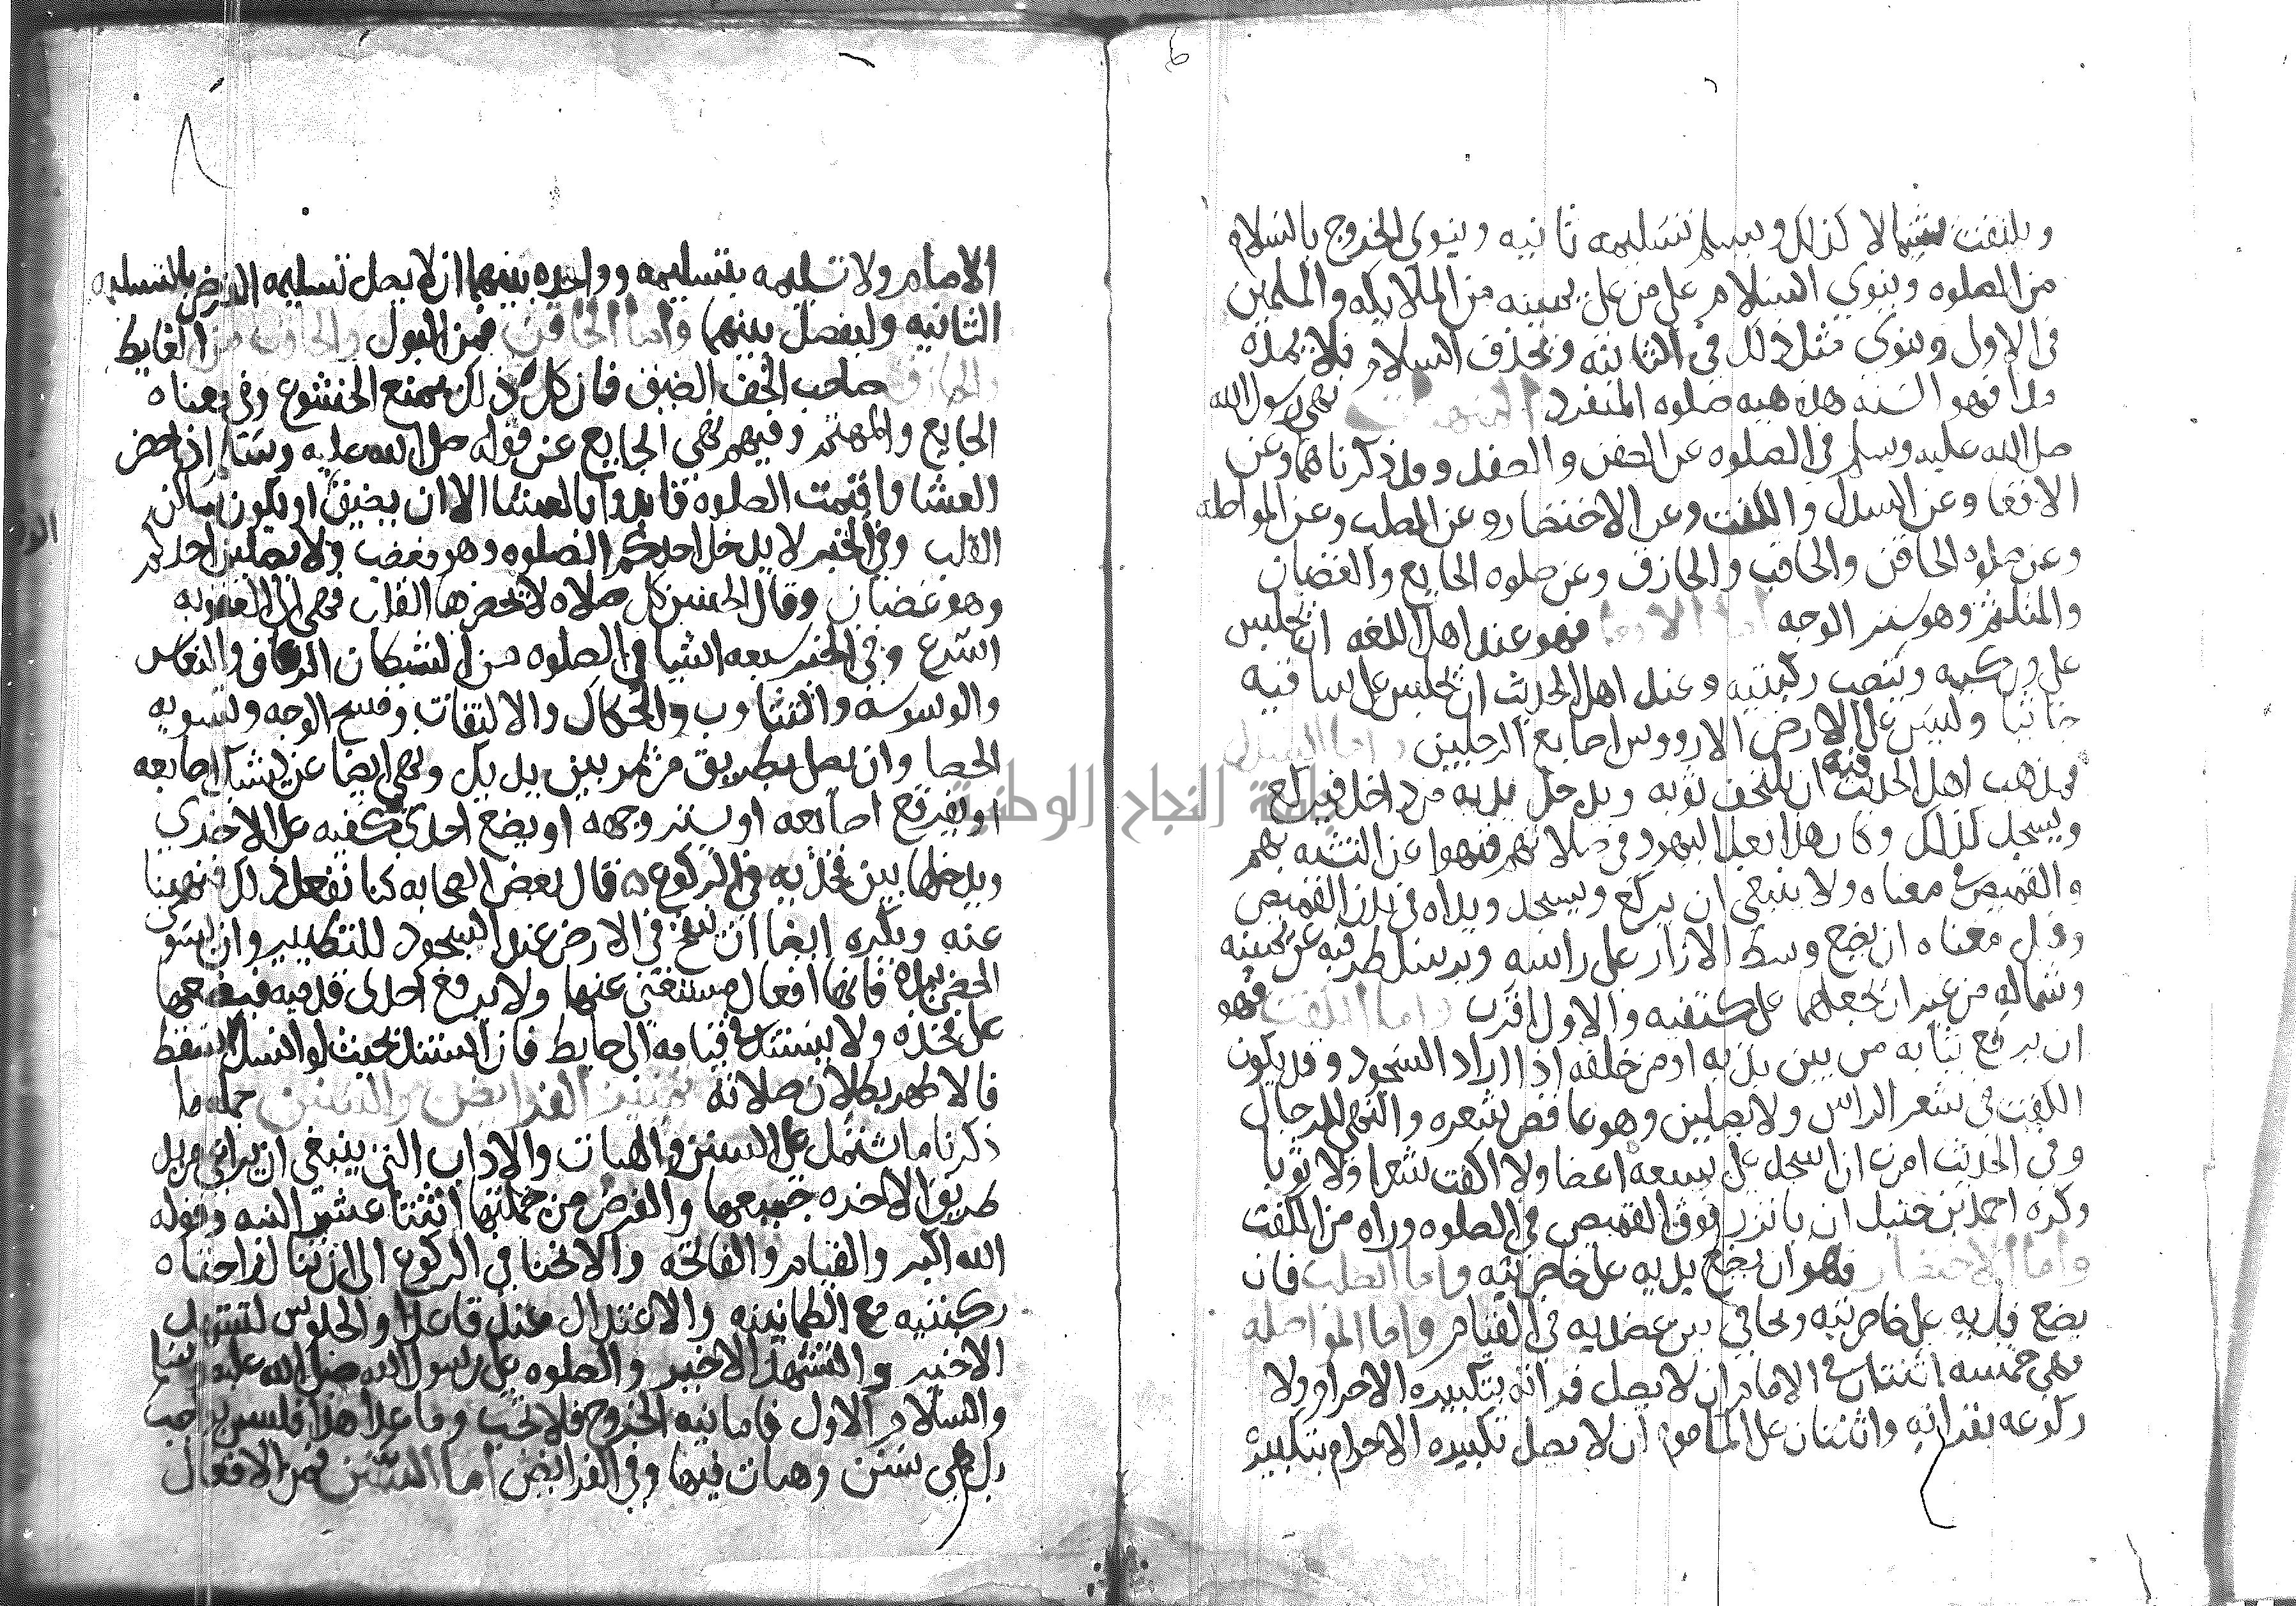 ويلتفت شمالا كذلك ويسلم تسليمه ثانيه وينوي الخروج بالسلام
من الصلوه وينوي السلام على من على يمينه من الملايكه والمسلمين
في الاول وينوي مثل ذلك في الثانيه ويحذف السلام فلا يمده
مدا فهو السنه هذه هيه صلوه المنفرد المنهيات نهى رسول الله
صلى الله عليه وسلم في الصلوه عن الصفن والصفد وقد ذكرناهما وعن
الاقعا وعن السدل والكفت وعن الاختصار وعن الصلب وعن المواصله
وعن صلوه الحاقن والحاقب والحازق وعن صلوه الجايع والغضبان
والمتلثم وهو ستر الوجه اما الاقعا فهو عند اهل اللغه ان يجلس
على وركيه وينصب ركبتيه وعند اهل الحديث ان يجلس على ساقيه
جاثيا وليس على الارض الا رووس اصابع الرجلين واما السدل
فمذهب اهل الحديث فيه ان يلتحف بثوبه ويدخل يديه من داخل فيركع
ويسجد كذلك وكان هذا فعل اليهود في صلاتهم فنهوا عن التشبه بهم
والقميص في معناه ولا ينبغي ان يركع ويسجد ويداه في بدن القميص
وقيل معناه ان يضع وسط الازار على راسه ويرسل طرفيه عن يمينه
وشماله من غير ان يجعلهما على كتفيه والاول اقرب واما الكفت فهو
ان يرفع ثيابه من بين يديه او من خلفه اذا اراد السجود وقد يكون
الكفت في شعر الراس ولا يصلين وهو عاقص شعره والنهي للرجال
وفي الحديث امرت ان اسجد على سبعه اعضا ولا اكفت شعرا ولا ثوبا
وكره احمد بن حنبل ان ياتزر فوق القميص في الصلوه وراه من الكفت
واما الاختصار فهو ان يضع يديه على خاصرتيه واما الصلب فان
يضع يديه على خاصرتيه ويجافي بين عضديه في القيام واما المواصله
فهي خمسه اثنتان في الامام ان لا يصل قراته بتكبيره الاحرام ولا
ركوعه بقراته واثنتان على الماموم ان لا يصل تكبيره الاحرام بتكبيره
الامام ولا تسليمه بتسليمه وواحده بينهما ان لا يصل تسليمه الفرض بالتسليمه
الثانيه وليفصل بينهما واما الحاقن فمن البول والحاقب من الغايط
والحازق صاحب الخف الضيق فان كل ذلك يمنع الخشوع وفي معناه
الجايع والمهتم وفهم نهي الجايع عن قوله صلى الله عليه وسلم اذا حضر
العشا واقيمت الصلوه فابدوا بالعشا الا ان يضيق او يكون ساكن
القلب وفي الخبر لا يدخل احدكم الصلوه وهو مغضب ولا يصلين احدكم
وهو غضبان وقال الحسن كل صلاه لا يحضرها القلب فهي الى العقوبه
اسرع وفي الخبر سبعه اشيا في الصلوه من الشيطان الرعاف والنعاس
والوسوسه والتثاوب والحكاك والالتفات ومسح الوجه وتسويه
الحصا وان يصلي بطريق من يمر بين يديه ونهي ايضا عن يشبك اصابعه
او يفرقع اصابعه او يستر وجهه او يضع احدى كفيه على الاخرى
ويدخلهما بين فخذيه في الركوع قال بعض الصحابه كنا نفعل ذلك فنهينا
عنه ويكره ايضا ان ينفخ في الارض عند السجود للتنظيف وان يسوى
الحصى بيده فانها افعال مستغنى عنها ولا يرفع احدى قدميه فيضعها
على فخذه ولا يستند في قيامه الى حايط فان استند بحيث لو انسل لسقط
فالاظهر بطلان صلاته تمييز الفرايض والسنن جمله ما
ذكرناه ما يشتمل على السنن والهيات والاداب التي ينبغي ان يراعي مريد
طريق الاخره جميعها والفرض من جملتها اثنتا عشر النيه وقوله
الله اكبر والقيام والفاتحه والانحنا في الركوع الى ان تنال راحتاه
ركبتيه مع الطمانينه والاعتدال عنه قاعدا والجلوس لتشهد
الاخير والتشهد الاخير والصلوه على رسول الله صلى الله عليه وسلم
والسلام الاول فاما نيه الخروج فلا تجب وما عدا هذا فليس بواجب
بل هي سنن وهيات فيها وفي الفرايض اما السنن فمن الافعال
جامعة النجاح الوطنية